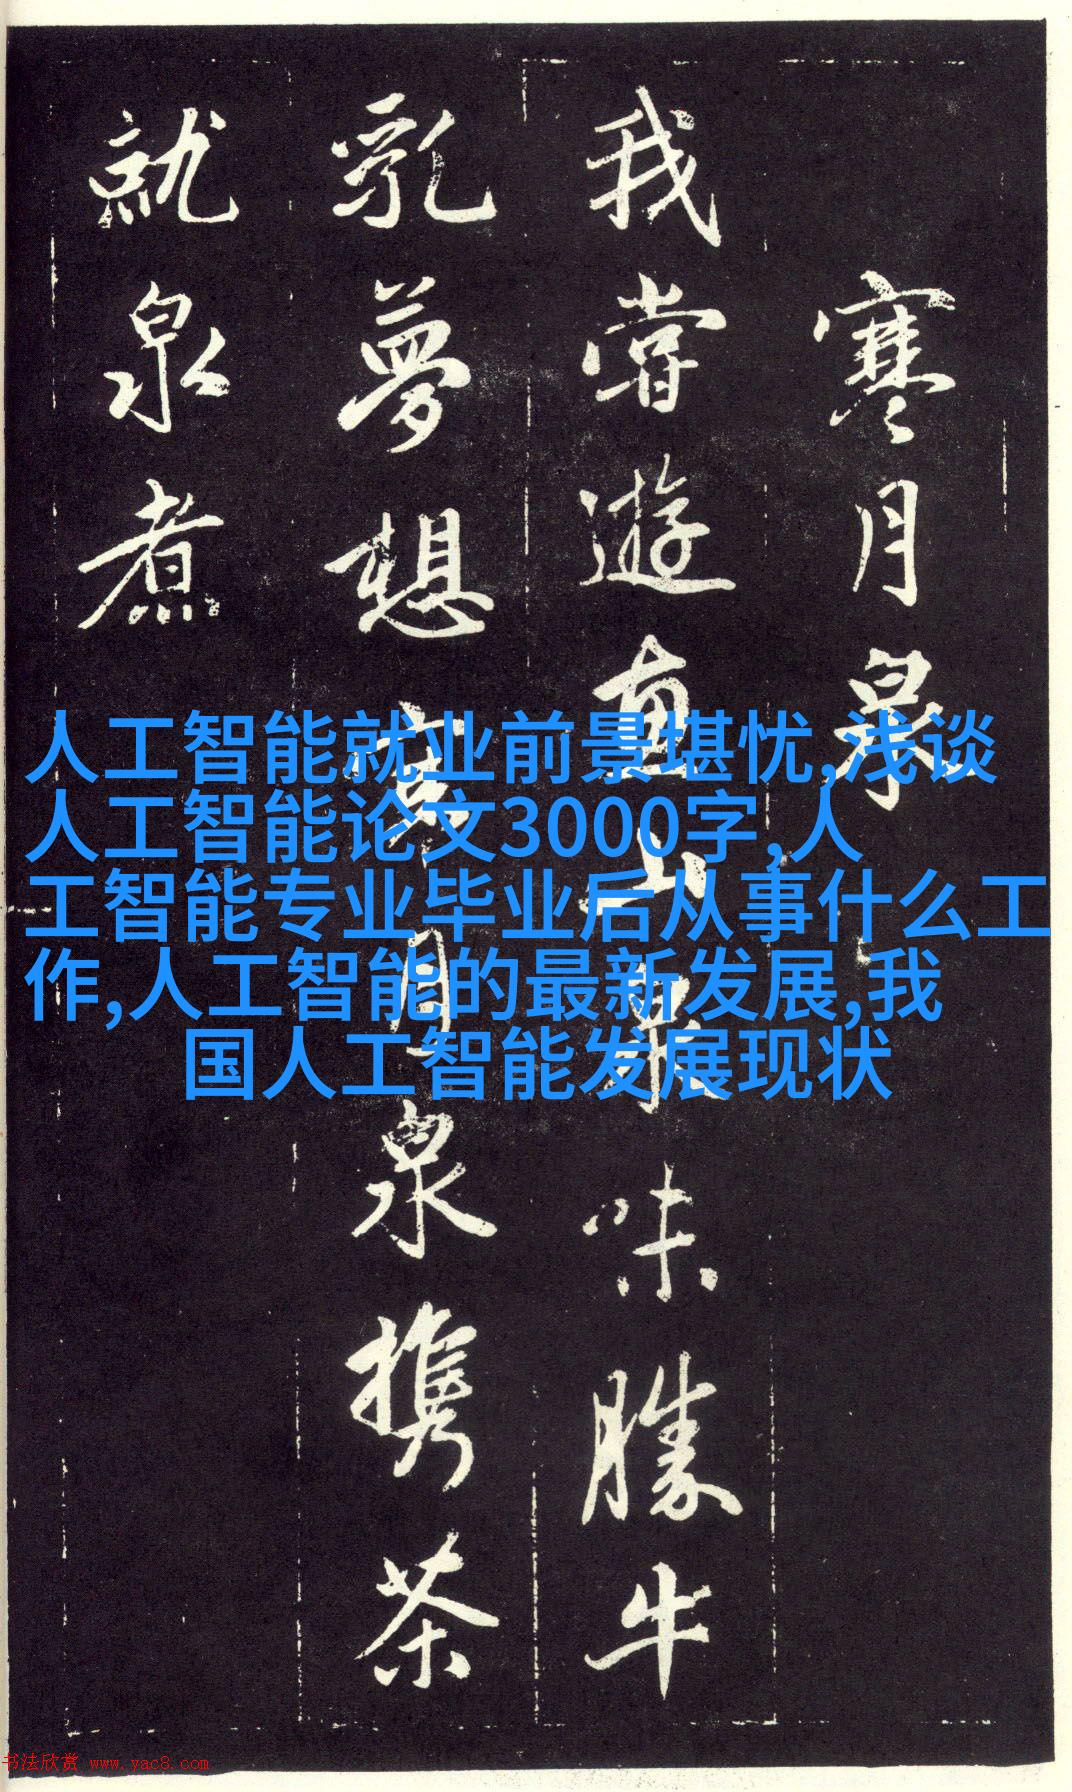 寒月泉
我嘗遊惠山泉味勝牛
乳夢想寒月泉携茶
就泉煮
人工智能就业前景堪忧,浅谈
人工智能论文3000字,人
工智能专业毕业后从事什么工
作,人工智能的最新发展,我
国人工智能发展现状
书法欣赏 www.yac8.com